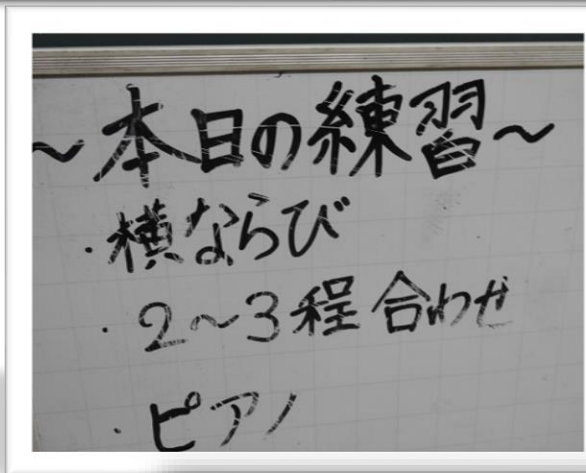 ~本日の練習~
・横ならび
・2~3程合わせ
・ピアノ